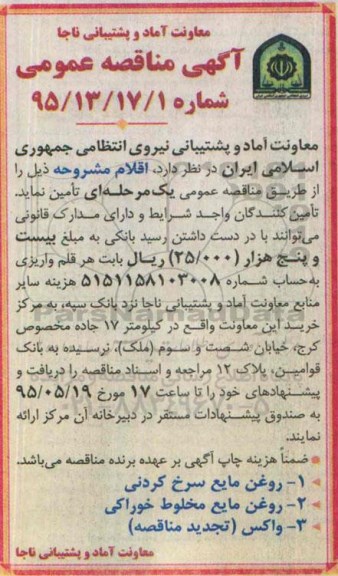 معاونت آماد و پشتیبانی ناجا
آگهی مناقصه عمومی
شماره ۹۵/۱۳/۱۷/۱
معاونت آماد و پشتیبانی نیروی انتظامی جمهوری
اسلامی ایران در نظر دارد، اقلام مشروحه ذیل را
از طریق مناقصه عمومی یک‌مرحله‌ای تأمین نماید.
تأمین‌کنندگان واجد شرایط و دارای مدارک قانونی
می‌توانند با در دست داشتن رسید بانکی به مبلغ بیست
و پنج هزار (۲۵/۰۰۰) ریال بابت هر قلم واریزی
به‌حساب شماره ۵۱۵۱۱۵۸۱۰۳۰۰۸ هزینه سایر
منابع معاونت آماد و پشتیبانی ناجا نزد بانک سپه، به مرکز
خرید این معاونت واقع در کیلومتر ۱۷ جاده مخصوص
کرج، خیابان شصت و سوم (ملک)، نرسیده به بانک
قوامین، پلاک ۱۲ مراجعه و اسناد مناقصه را دریافت و
پیشنهادهای خود را تا ساعت ۱۷ مورخ ۹۵/۰۵/۱۹
به صندوق پیشنهادات مستقر در دبیرخانه آن مرکز ارائه
نمایند.
ضمناً هزینه چاپ آگهی بر عهده برنده مناقصه می‌باشد.
۱- روغن مایع سرخ کردنی
۲- روغن مایع مخلوط خوراکی
۳- واکس (تجدید مناقصه)
معاونت آماد و پشتیبانی ناجا
ParsNamadData